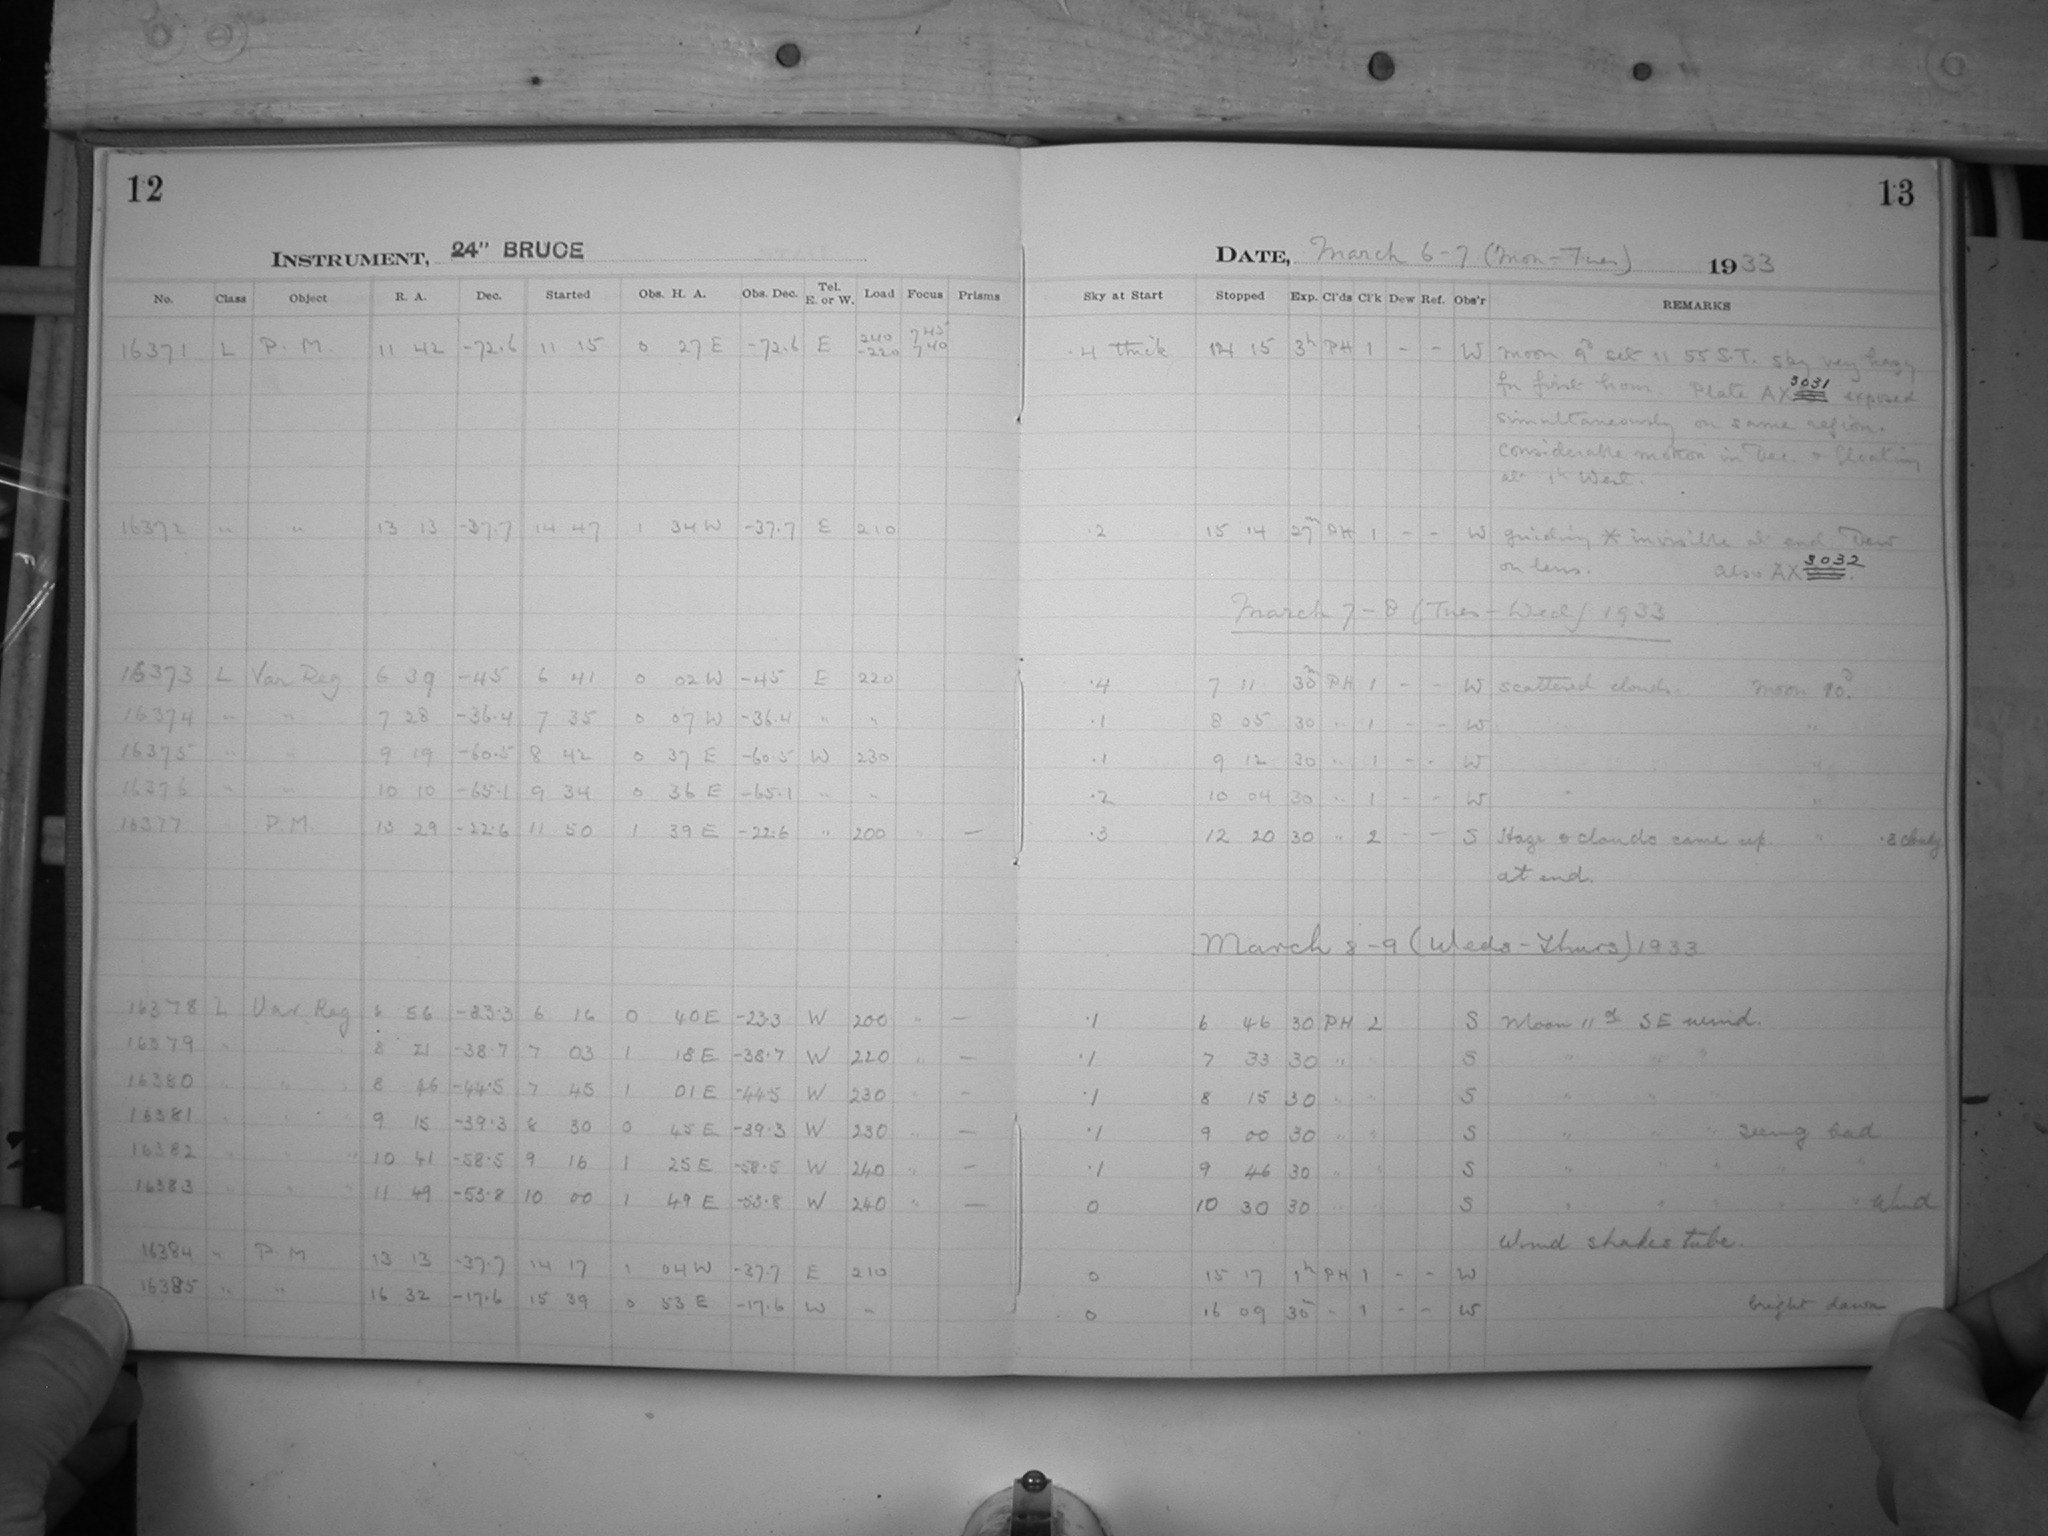 12
13
INSTRUMENT, 24" BRUCE
DATE, March 6-7 (Mon-Tues) 1933
No. Class Object R. A. Dec. Started Obs. H. A. Obs. Dec. Tel. E. or W. Load Focus Prisms Sky at Start Stopped Exp. Cl'ds Cl'k Dew Ref. Obs'r REMARKS
16371 L P. M. 11 42 -72.6 11 15 0 27 E -72.6 E 240 -220 745 740 .4 thick 14 15 3h PH 1 - - W moon 9d set 11 55 S.T. sky very hazy
for first hour. Plate AX 3031 exposed
simultaneously on same region.
Considerable motion in Dec. & floating
at 1h West.
16372 " " 13 13 -37.7 14 47 1 34 W -37.7 E 210 .2 15 14 27m PH 1 - - W guiding * invisible at end Dew
on lens. Also AX 3032.
March 7-8 (Tues-Wed) 1933
16373 L Var Reg 6 39 -45 6 41 0 02 W -45 E 220 .4 7 11 30m PH 1 - - W scattered clouds. Moon 10d.
16374 " " 7 28 -36.4 7 35 0 07 W -36.4 " " .1 8 05 30 " 1 - - W " "
16375 " " 9 19 -60.5 8 42 0 37 E -60.5 W 230 .1 9 12 30 " 1 - - W "
16376 " " 10 10 -65.1 9 34 0 36 E -65.1 " " .2 10 04 30 " 1 - - W " "
16377 " P.M. 13 29 -22.6 11 50 1 39 E -22.6 " 200 " — .3 12 20 30 " 2 - - S Haze & clouds came up. " .8 cloudy
at end.
March 8-9 (Weds-Thurs) 1933
16378 L Var. Reg 6 56 -23.3 6 16 0 40 E -23.3 W 200 " — .1 6 46 30 PH 2 S Moon 11d SE wind.
16379 " " 8 21 -38.7 7 03 1 18 E -38.7 W 220 " — .1 7 33 30 " " S " " "
16380 " " 8 46 -44.5 7 45 1 01 E -44.5 W 230 " — .1 8 15 30 " " S " " "
16381 " " 9 15 -39.3 8 30 0 45 E -39.3 W 230 " — .1 9 00 30 " " S " " " Seeing bad
16382 " " 10 41 -58.5 9 16 1 25 E -58.5 W 240 " — .1 9 46 30 " " S " " " " "
16383 " " 11 49 -53.8 10 00 1 49 E -53.8 W 240 " — 0 10 30 30 " " S " " " " " Wind
Wind shakes tube.
16384 " P. M 13 13 -37.7 14 17 1 04 W -37.7 E 210 0 15 17 1h PH 1 - - W
16385 " " 16 32 -17.6 15 39 0 53 E -17.6 W " 0 16 09 30m " 1 - - W bright dawn